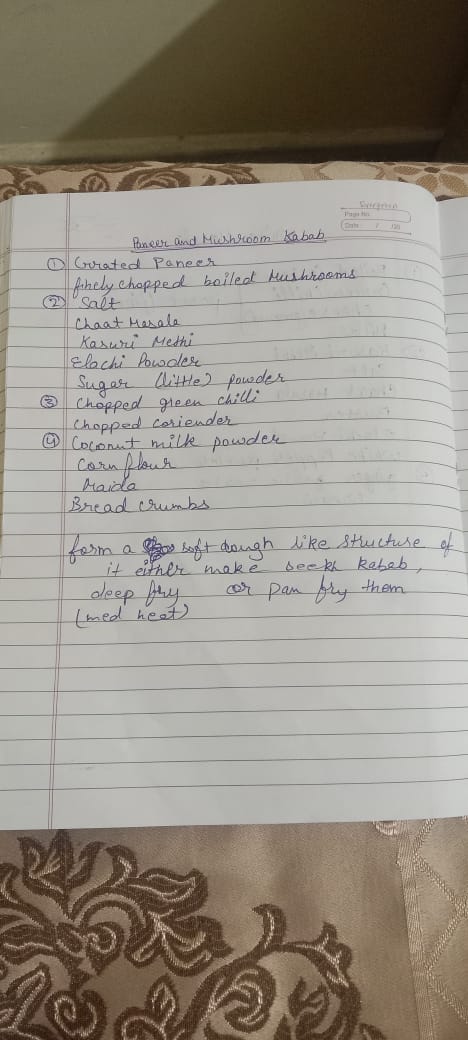 Evergreen
Page No.
Date / /20
Paneer and Mushroom Kabab
① Grated Paneer
finely chopped boiled Mushrooms
② Salt
Chaat Masala
Kasuri Methi
Elachi Powder
Sugar (little) powder
③ Chopped green chilli
Chopped coriender
④ Coconut milk powder
Corn flour
Maida
Bread crumbs
form a soft dough like structure of
it either make seekh kabab,
deep fry or pan fry them
(med heat)